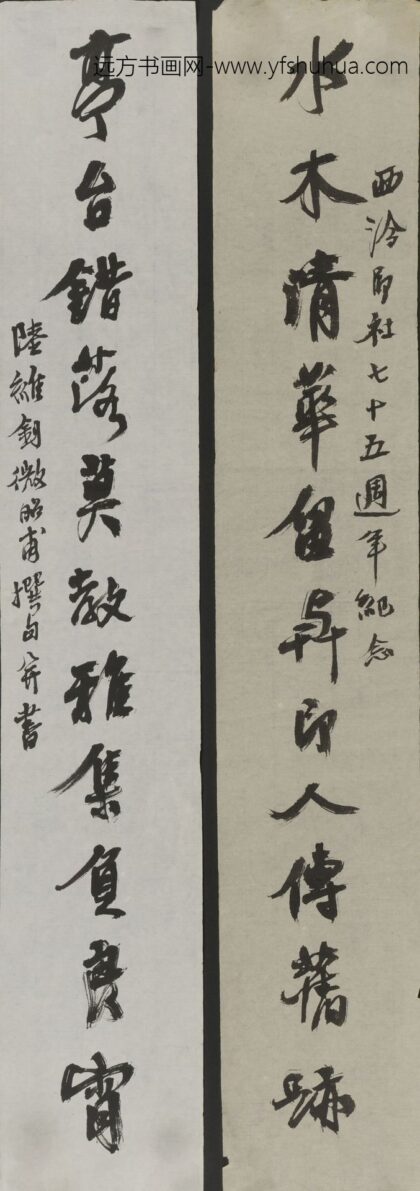 远方书画网-www.yfshuhua.com
西泠印社七十五週年紀念
水木清華留與印人傳舊跡
亭台錯落莫教雅集負良宵
陸維釗微昭甫撰句并書